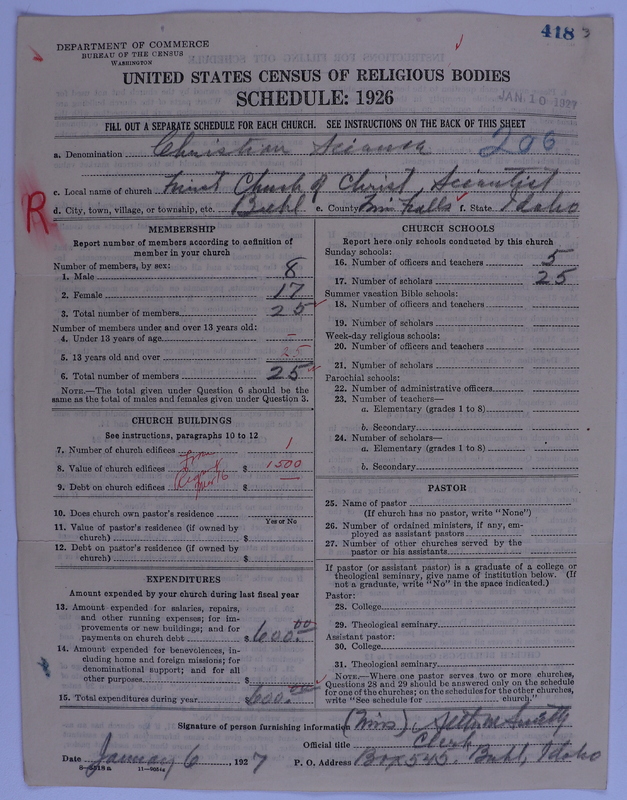 418 3
DEPARTMENT OF COMMERCE
BUREAU OF THE CENSUS
WASHINGTON
UNITED STATES CENSUS OF RELIGIOUS BODIES
SCHEDULE: 1926
JAN 10 1927
FILL OUT A SEPARATE SCHEDULE FOR EACH CHURCH. SEE INSTRUCTIONS ON THE BACK OF THIS SHEET
a. Denomination Christian Science 206
c. Local name of church First Church of Christ, Scientist
R
d. City, town, village, or township, etc. Buhl e. County Twin Falls f. State Idaho
MEMBERSHIP
Report number of members according to definition of
member in your church
Number of members, by sex:
1. Male 8
2. Female 17
3. Total number of members 25
Number of members under and over 13 years old:
4. Under 13 years of age –
5. 13 years old and over 25
6. Total number of members 25
NOTE.—The total given under Question 6 should be the
same as the total of males and females given under Question 3.
CHURCH BUILDINGS
See instructions, paragraphs 10 to 12
7. Number of church edifices 1
8. Value of church edifices $ 1500
9. Debt on church edifices $ —
10. Does church own pastor's residence
Yes or No
11. Value of pastor's residence (if owned by
church) $
12. Debt on pastor's residence (if owned by
church) $
EXPENDITURES
Amount expended by your church during last fiscal year
13. Amount expended for salaries, repairs,
and other running expenses; for im-
provements or new buildings; and for
payments on church debt $ 600.00
14. Amount expended for benevolences, in-
cluding home and foreign missions; for
denominational support; and for all
other purposes
15. Total expenditures during year $ 600.00
CHURCH SCHOOLS
Report here only schools conducted by this church
Sunday schools:
16. Number of officers and teachers 5
17. Number of scholars 25
Summer vacation Bible schools:
18. Number of officers and teachers
19. Number of scholars
Week-day religious schools:
20. Number of officers and teachers
21. Number of scholars
Parochial schools:
22. Number of administrative officers
23. Number of teachers—
a. Elementary (grades 1 to 8)
b. Secondary
24. Number of scholars—
a. Elementary (grades 1 to 8)
b. Secondary
PASTOR
25. Name of pastor
(If church has no pastor, write "None")
26. Number of ordained ministers, if any, em-
ployed as assistant pastors
27. Number of other churches served by the
pastor or his assistants
If pastor (or assistant pastor) is a graduate of a college or
theological seminary, give name of institution below. (If
not a graduate, write "No" in the space indicated.)
Pastor:
28. College
29. Theological seminary
Assistant pastor:
30. College
31. Theological seminary
NOTE.—Where one pastor serves two or more churches,
Questions 28 and 29 should be answered only on the schedule
for one of the churches; on the schedules for the other churches,
write "See schedule for church."
Signature of person furnishing information (Miss)
Official title Clerk
Date January 6, 1927 P. O. Address Box 545. Buhl, Idaho
8—5518a 11—9054a